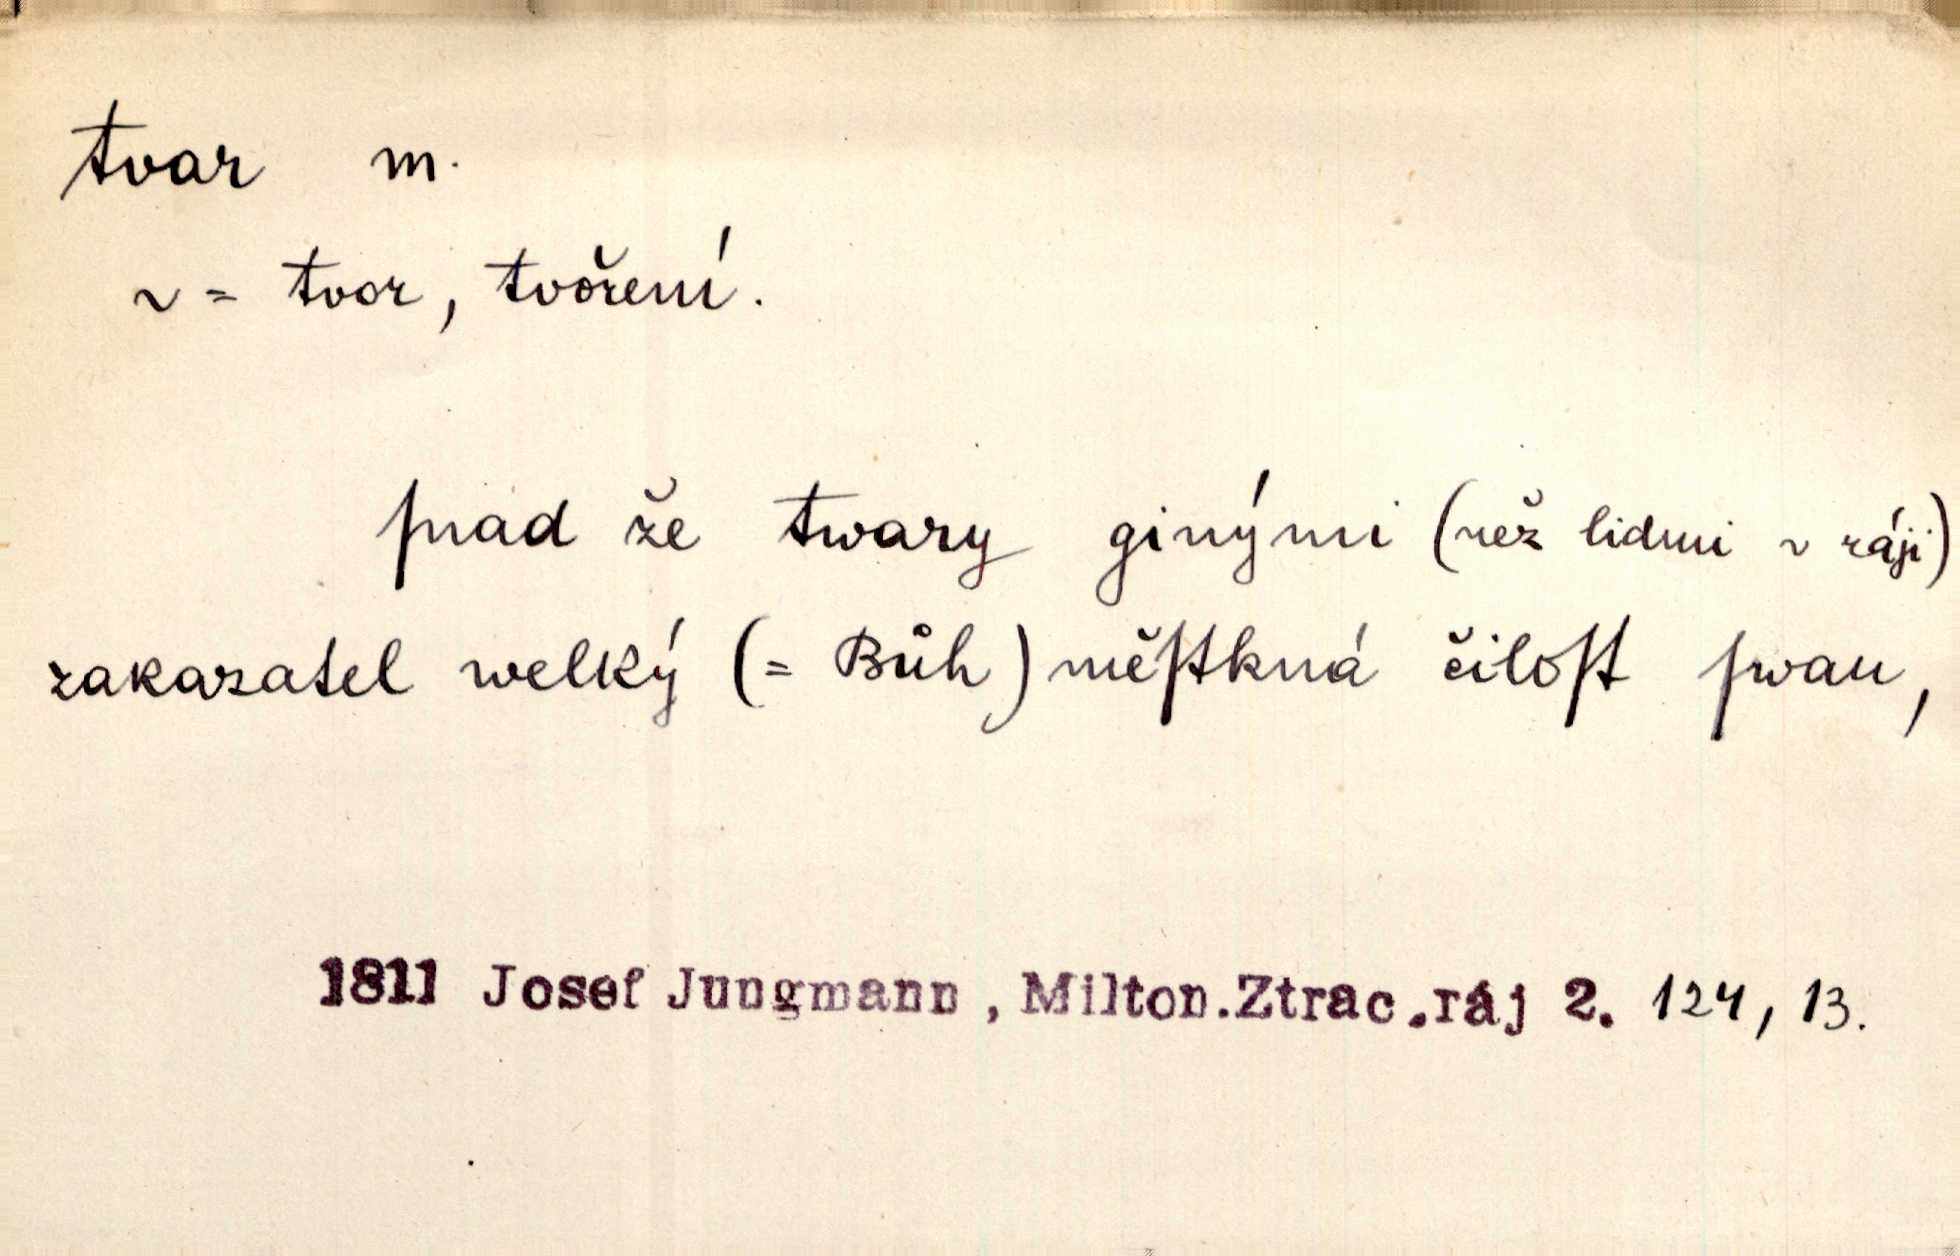 tvar m.
v = tvor, tvoření.
ſnad že twary ginými (než lidmi v ráji)
zakazatel welký (= Bůh) měſtkná čiloſt ſwau,
1811 Josef Jungmann, Milton. Ztrac. ráj 2. 124, 13.